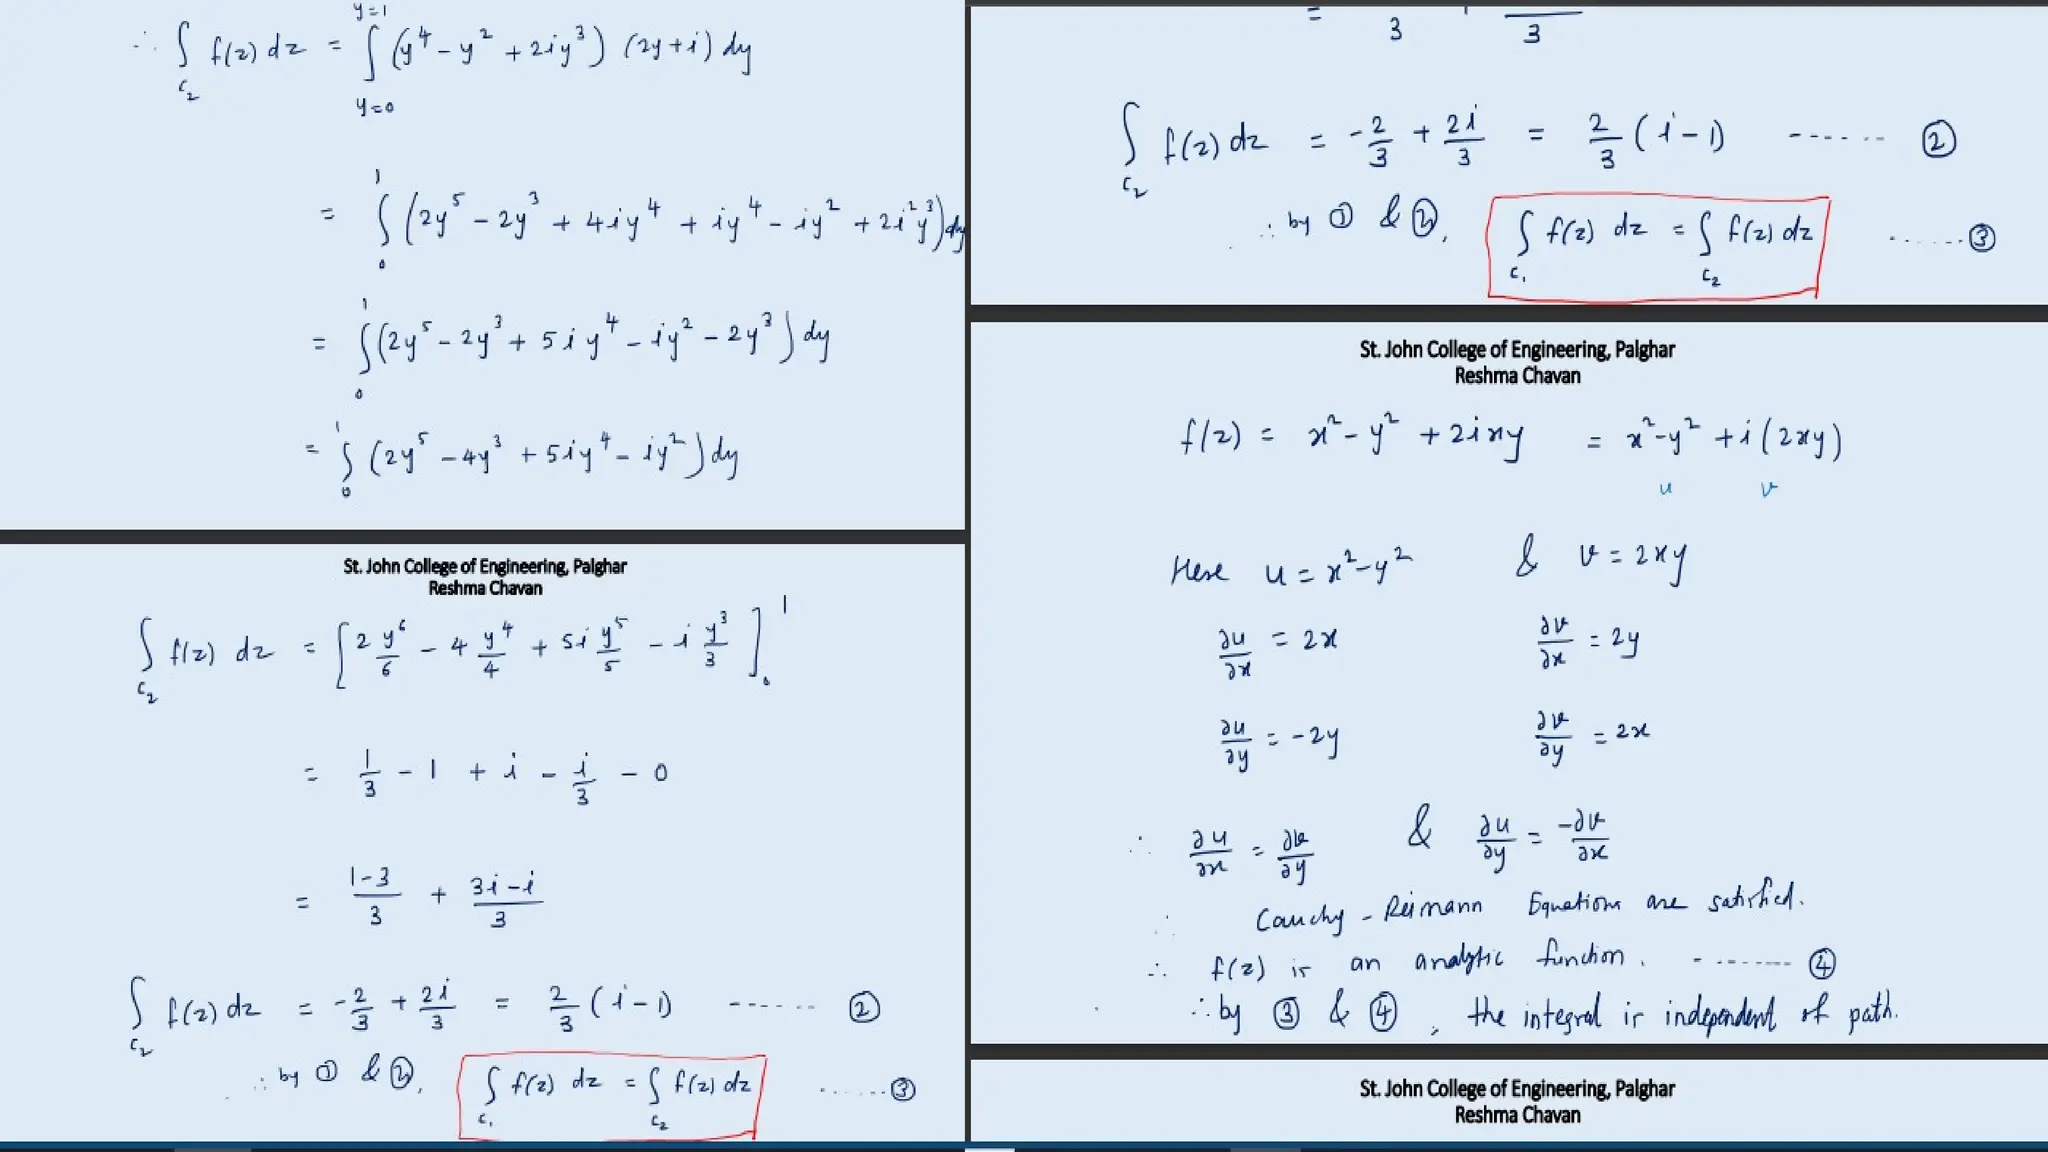 y=1
∴ ∫ f(z) dz = ∫ (y⁴ - y² + 2iy³) (2y+i) dy
C₂ y=0
= ∫₀¹ (2y⁵ - 2y³ + 4iy⁴ + iy⁴ - iy² + 2i²y³) dy
= ∫₀¹ (2y⁵ - 2y³ + 5iy⁴ - iy² - 2y³) dy
= ∫₀¹ (2y⁵ - 4y³ + 5iy⁴ - iy²) dy
St. John College of Engineering, Palghar
Reshma Chavan
∫_C₂ f(z) dz = [2 y⁶/6 - 4 y⁴/4 + 5i y⁵/5 - i y³/3]₀¹
= 1/3 - 1 + i - i/3 - 0
= (1-3)/3 + (3i-i)/3
∫_C₂ f(z) dz = -2/3 + 2i/3 = 2/3 (i-1) ------ ②
∴ by ① & ②, ∫_C₁ f(z) dz = ∫_C₂ f(z) dz ......③
= 3 3
∫_C₂ f(z) dz = -2/3 + 2i/3 = 2/3 (i-1) ------ ②
∴ by ① & ②, ∫_C₁ f(z) dz = ∫_C₂ f(z) dz ......③
St. John College of Engineering, Palghar
Reshma Chavan
f(z) = x² - y² + 2ixy = x²-y² + i(2xy)
u v
Here u = x²-y² & v = 2xy
∂u/∂x = 2x ∂v/∂x = 2y
∂u/∂y = -2y ∂v/∂y = 2x
∴ ∂u/∂x = ∂v/∂y & ∂u/∂y = -∂v/∂x
∴ Cauchy - Reimann Equations are satisfied.
∴ f(z) is an analytic function. -------- ④
∴ by ③ & ④, the integral is independent of path.
St. John College of Engineering, Palghar
Reshma Chavan